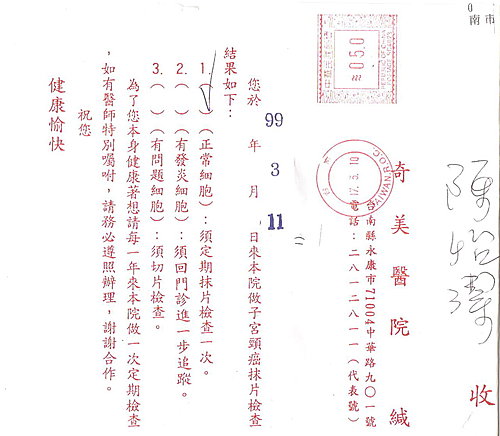 南市
陳怡潔 收
奇美醫院 緘
台南縣永康市71004中華路九○一號
電話：二八一二八一一（代表號）
050
TAIWAN R.O.C.
您於 99 年 3 月 11 日來本院做子宮頸癌抹片檢查
結果如下：
1.（✓）（正常細胞）：須定期抹片檢查一次。
2.（ ）（有發炎細胞）：須回門診進一步追蹤。
3.（ ）（有問題細胞）：須切片檢查。
為了您本身健康著想請每一年來本院做一次定期檢查
，如有醫師特別囑咐，請務必遵照辦理，謝謝合作。
祝您
健康愉快